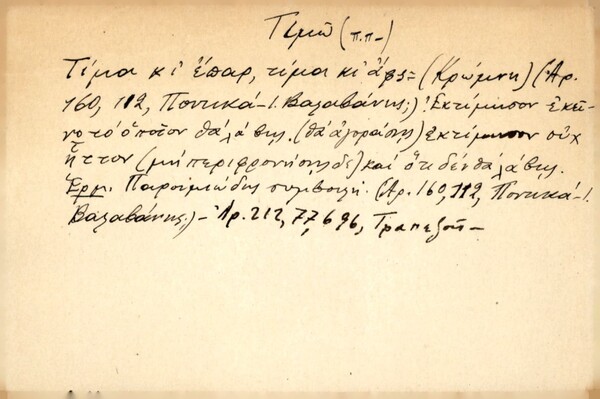 Τιμῶ (π.π-)
Τίμα κι ἔπαρ, τίμα κι ἄφς = (Κρώμνη) (Ἀρ.
160, 112, Ποντικά-Ι. Βαλαβάνης;) Ἐκτίμησον ἐκεῖ-
νο τό ὁποῖον θά λάβῃς. (θά ἀγοράσῃς) ἐκτίμησον οὐχ
ἧττον (μή περιφρονήσῃς δέ) καί ὅ,τι δέν θα λάβῃς.
Ἑρμ. Παροιμιώδης συμβουλή. (Ἀρ. 160, 112, Ποντικά-Ι.
Βαλαβάνης;) - Ἀρ. 212, 77, 696, Τραπεζοῦς -